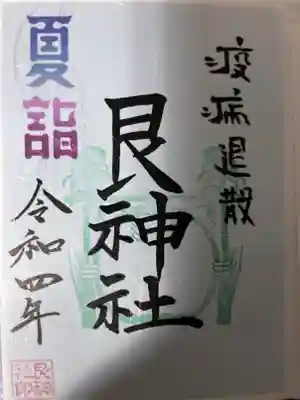 疫病退散
艮神社
夏詣
令和四年